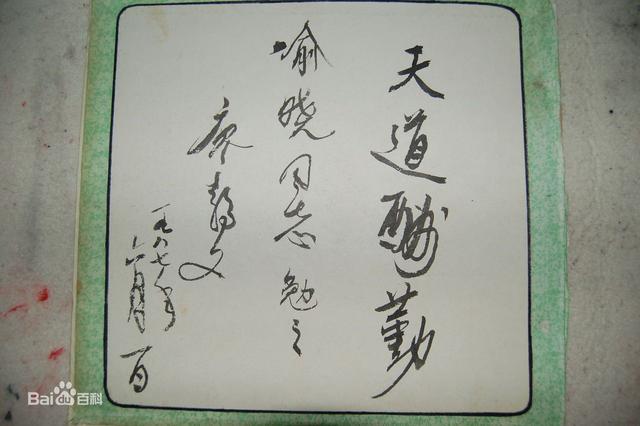 天道酬勤
喻晓同志勉之
廖静文
一九八七年
六月一日
Bai百科